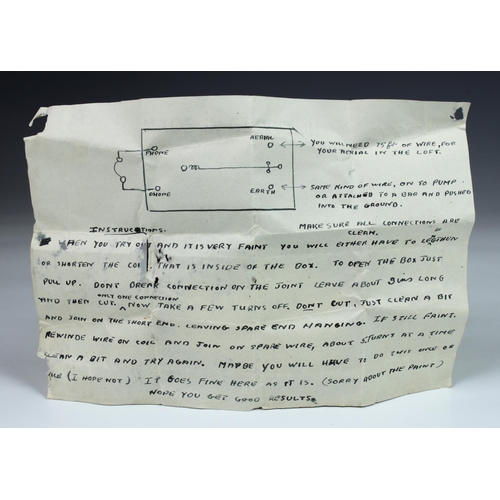 AERIAL
YOU WILL NEED 75ft OF WIRE, FOR
YOUR AERIAL IN THE LOFT.
PHONE
PHONE
EARTH
SAME KIND OF WIRE, ON TO PUMP
OR ATTACHED TO A BAR AND PUSHED
INTO THE GROUND.
INSTRUCTIONS.
MAKE SURE ALL CONNECTIONS ARE
CLEAN.
HEN YOU TRY OUT AND IT IS VERY FAINT YOU WILL EITHER HAVE TO LEGTHEN
OR SHORTEN THE COIL THAT IS INSIDE OF THE BOX. TO OPEN THE BOX JUST
PULL UP. DONT BREAK CONNECTION ON THE JOINT LEAVE ABOUT 3ins LONG
ONLY ONE CONNECTION
AND THEN CUT. NOW TAKE A FEW TURNS OFF. DONT CUT, JUST CLEAN A BIT
AND JOIN ON THE SHORT END. LEAVING SPARE END HANGING. IF STILL FAINT.
REWINDE WIRE ON COIL AND JOIN ON SPARE WIRE, ABOUT 5 TURNS AT A TIME
CLEAN A BIT AND TRY AGAIN. MAYBE YOU WILL HAVE TO DO THIS ONCE OR
(I HOPE NOT) IT GOES FINE HERE AS IT IS. (SORRY ABOUT THE PAINT)
HOPE YOU GET GOOD RESULTS.